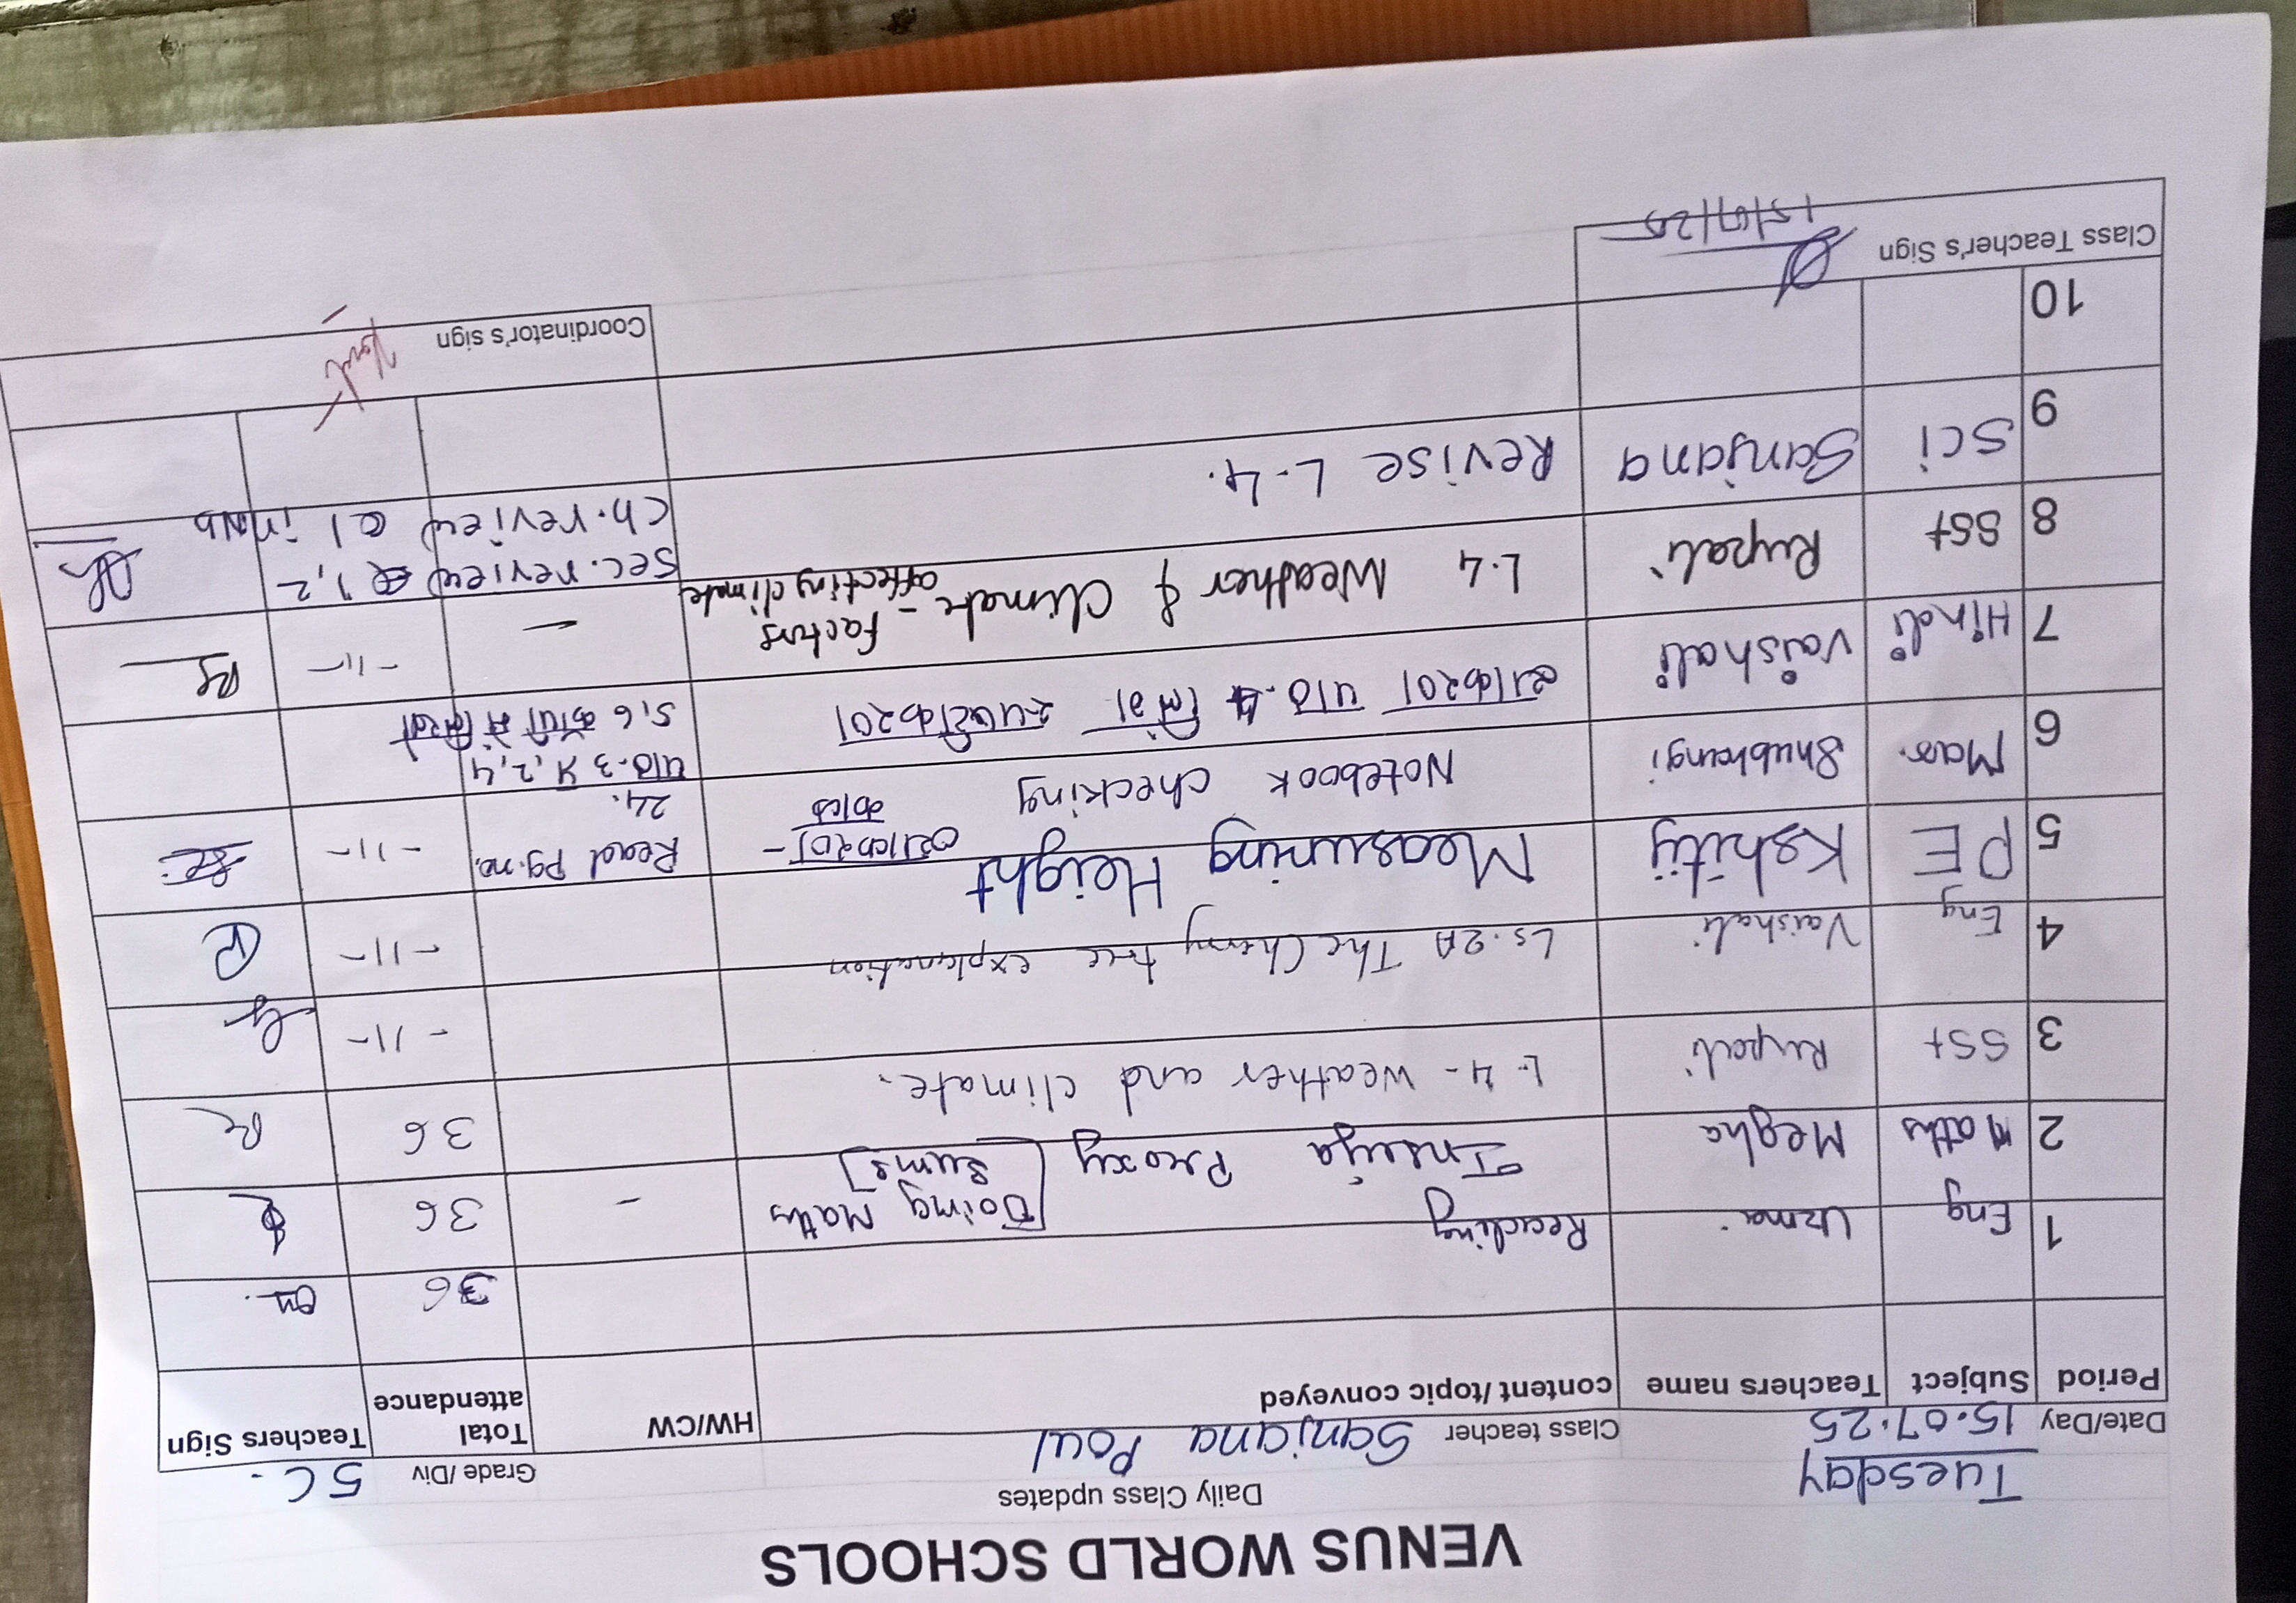 VENUS WORLD SCHOOLS
Daily Class updates
Tuesday
Date/Day 15.07.25 Class teacher Sanjana Poul Grade/Div 5C.
Period Subject Teachers name content/topic conveyed HW/CW Total attendance Teachers Sign
1 Eng Uzma Reading 36
2 Maths Megha Insiya Proxy [Doing Maths sums] - 36
3 SSt Rupali L-4 - Weather and climate. 36
4 Eng Vaishali Ls. 2A The Cherry tree explanation -11-
5 PE Kshitij Measuring Height -11-
6 Mar. Shubhangi Notebook checking व्याकरण - काळ Read Pg. no. 24. -11-
7 Hindi Vaishali व्याकरण पाठ. 4 लिंग पाठ. 3 2, 4 5, 6 में
8 SSt Rupali L.4 Weather & Climate - Factors affecting climate - -11-
9 Sci Sanjana Revise L-4. Sec. review Q 1, 2 Ch. review Q1 in NB
10
Class Teacher's Sign 15/07/25 Coordinator's sign